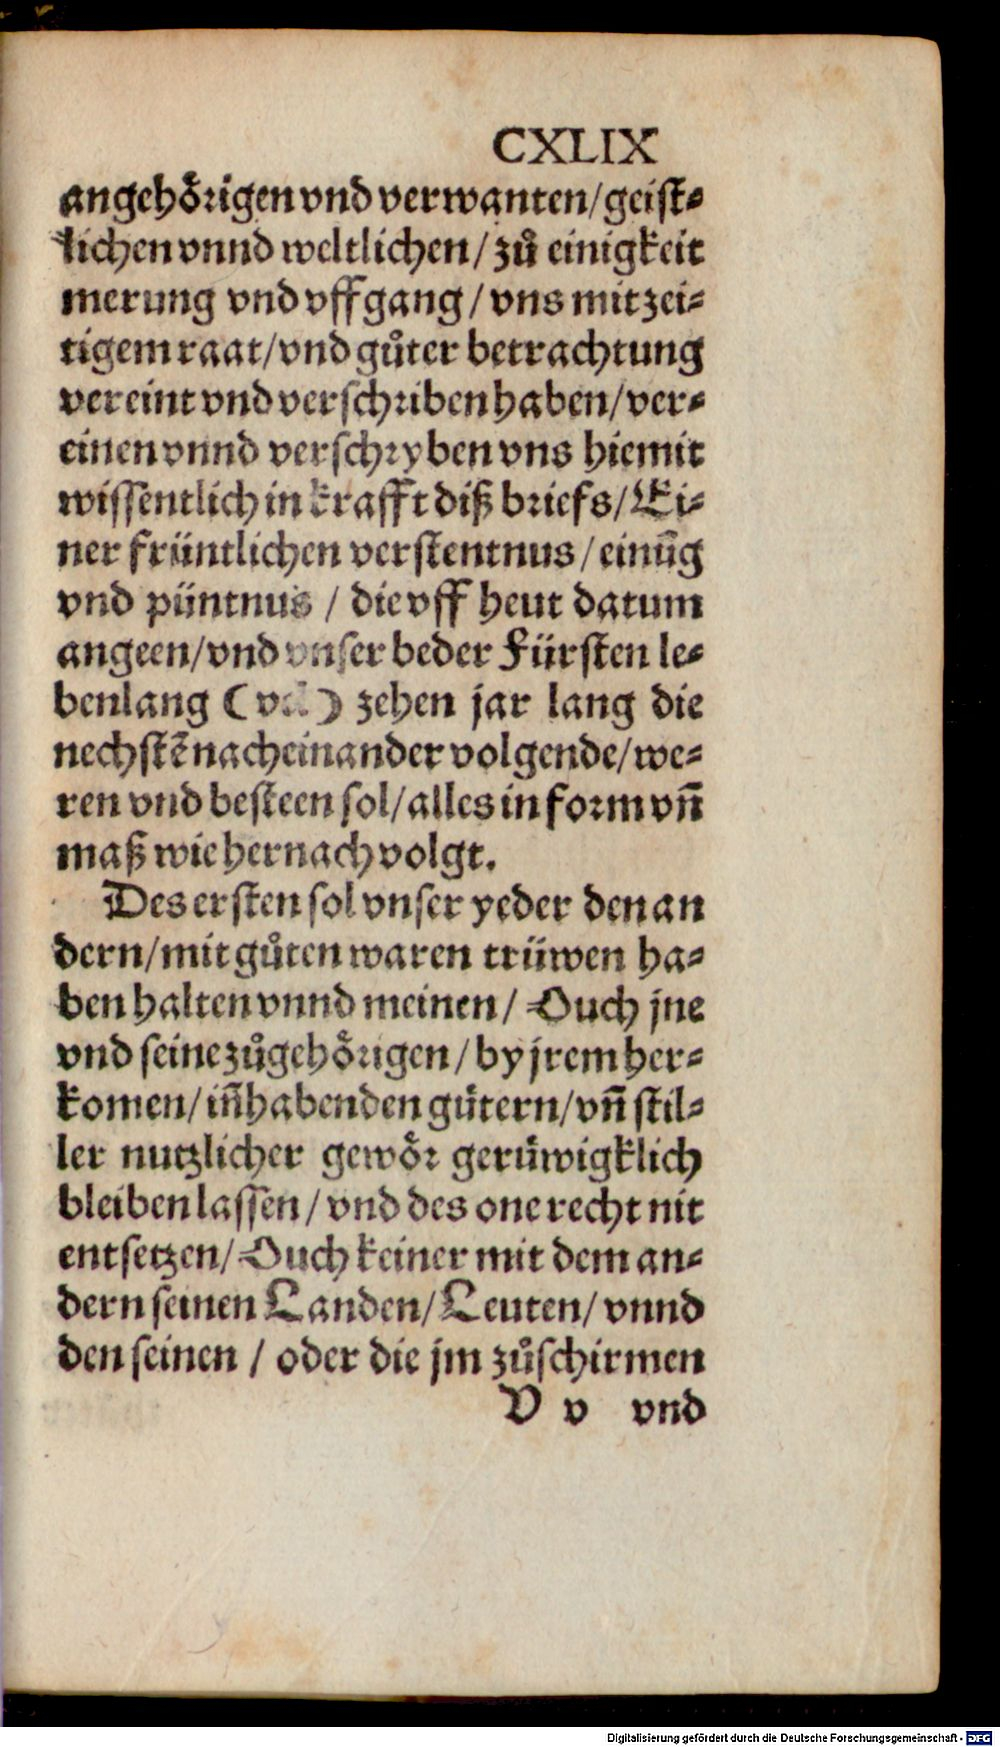 CXLIX
angehoͤrigen vnd verwanten/geist⸗
lichen vnnd weltlichen/ zuͦ einigkeit
merung vnd vffgang/ vns mit zei⸗
tigem raat/vnd guͦter betrachtung
vereint vnd verschriben haben/ver⸗
einen vnnd verschryben vns hiemit
wissentlich in krafft diß briefs/Ei⸗
ner früntlichen verstentnus/ einūg
vnd püntnus / die vff heut datum
angeen/vnd vnser beder Fürsten le⸗
benlang ( ) zehen jar lang die
nechstē nacheinander volgende/we⸗
ren vnd besteen sol/alles in form vn̄
maß wie hernach volgt.
Des ersten sol vnser yeder den an
dern/mit guͦten waren trüwen ha⸗
ben halten vnnd meinen/ Ouch jne
vnd seine zuͦgehoͤrigen/ by jrem her⸗
komen/in̄habenden guͤtern/vn̄ stil⸗
ler nutzlicher gewoͤr geruͤwigklich
bleiben lassen/ vnd des one recht nit
entsetzen/ Ouch keiner mit dem an⸗
dern seinen Landen/Leuten/ vnnd
den seinen / oder die jm zuͦschirmen
V v vnd
Digitalisierung gefördert durch die Deutsche Forschungsgemeinschaft - DFG